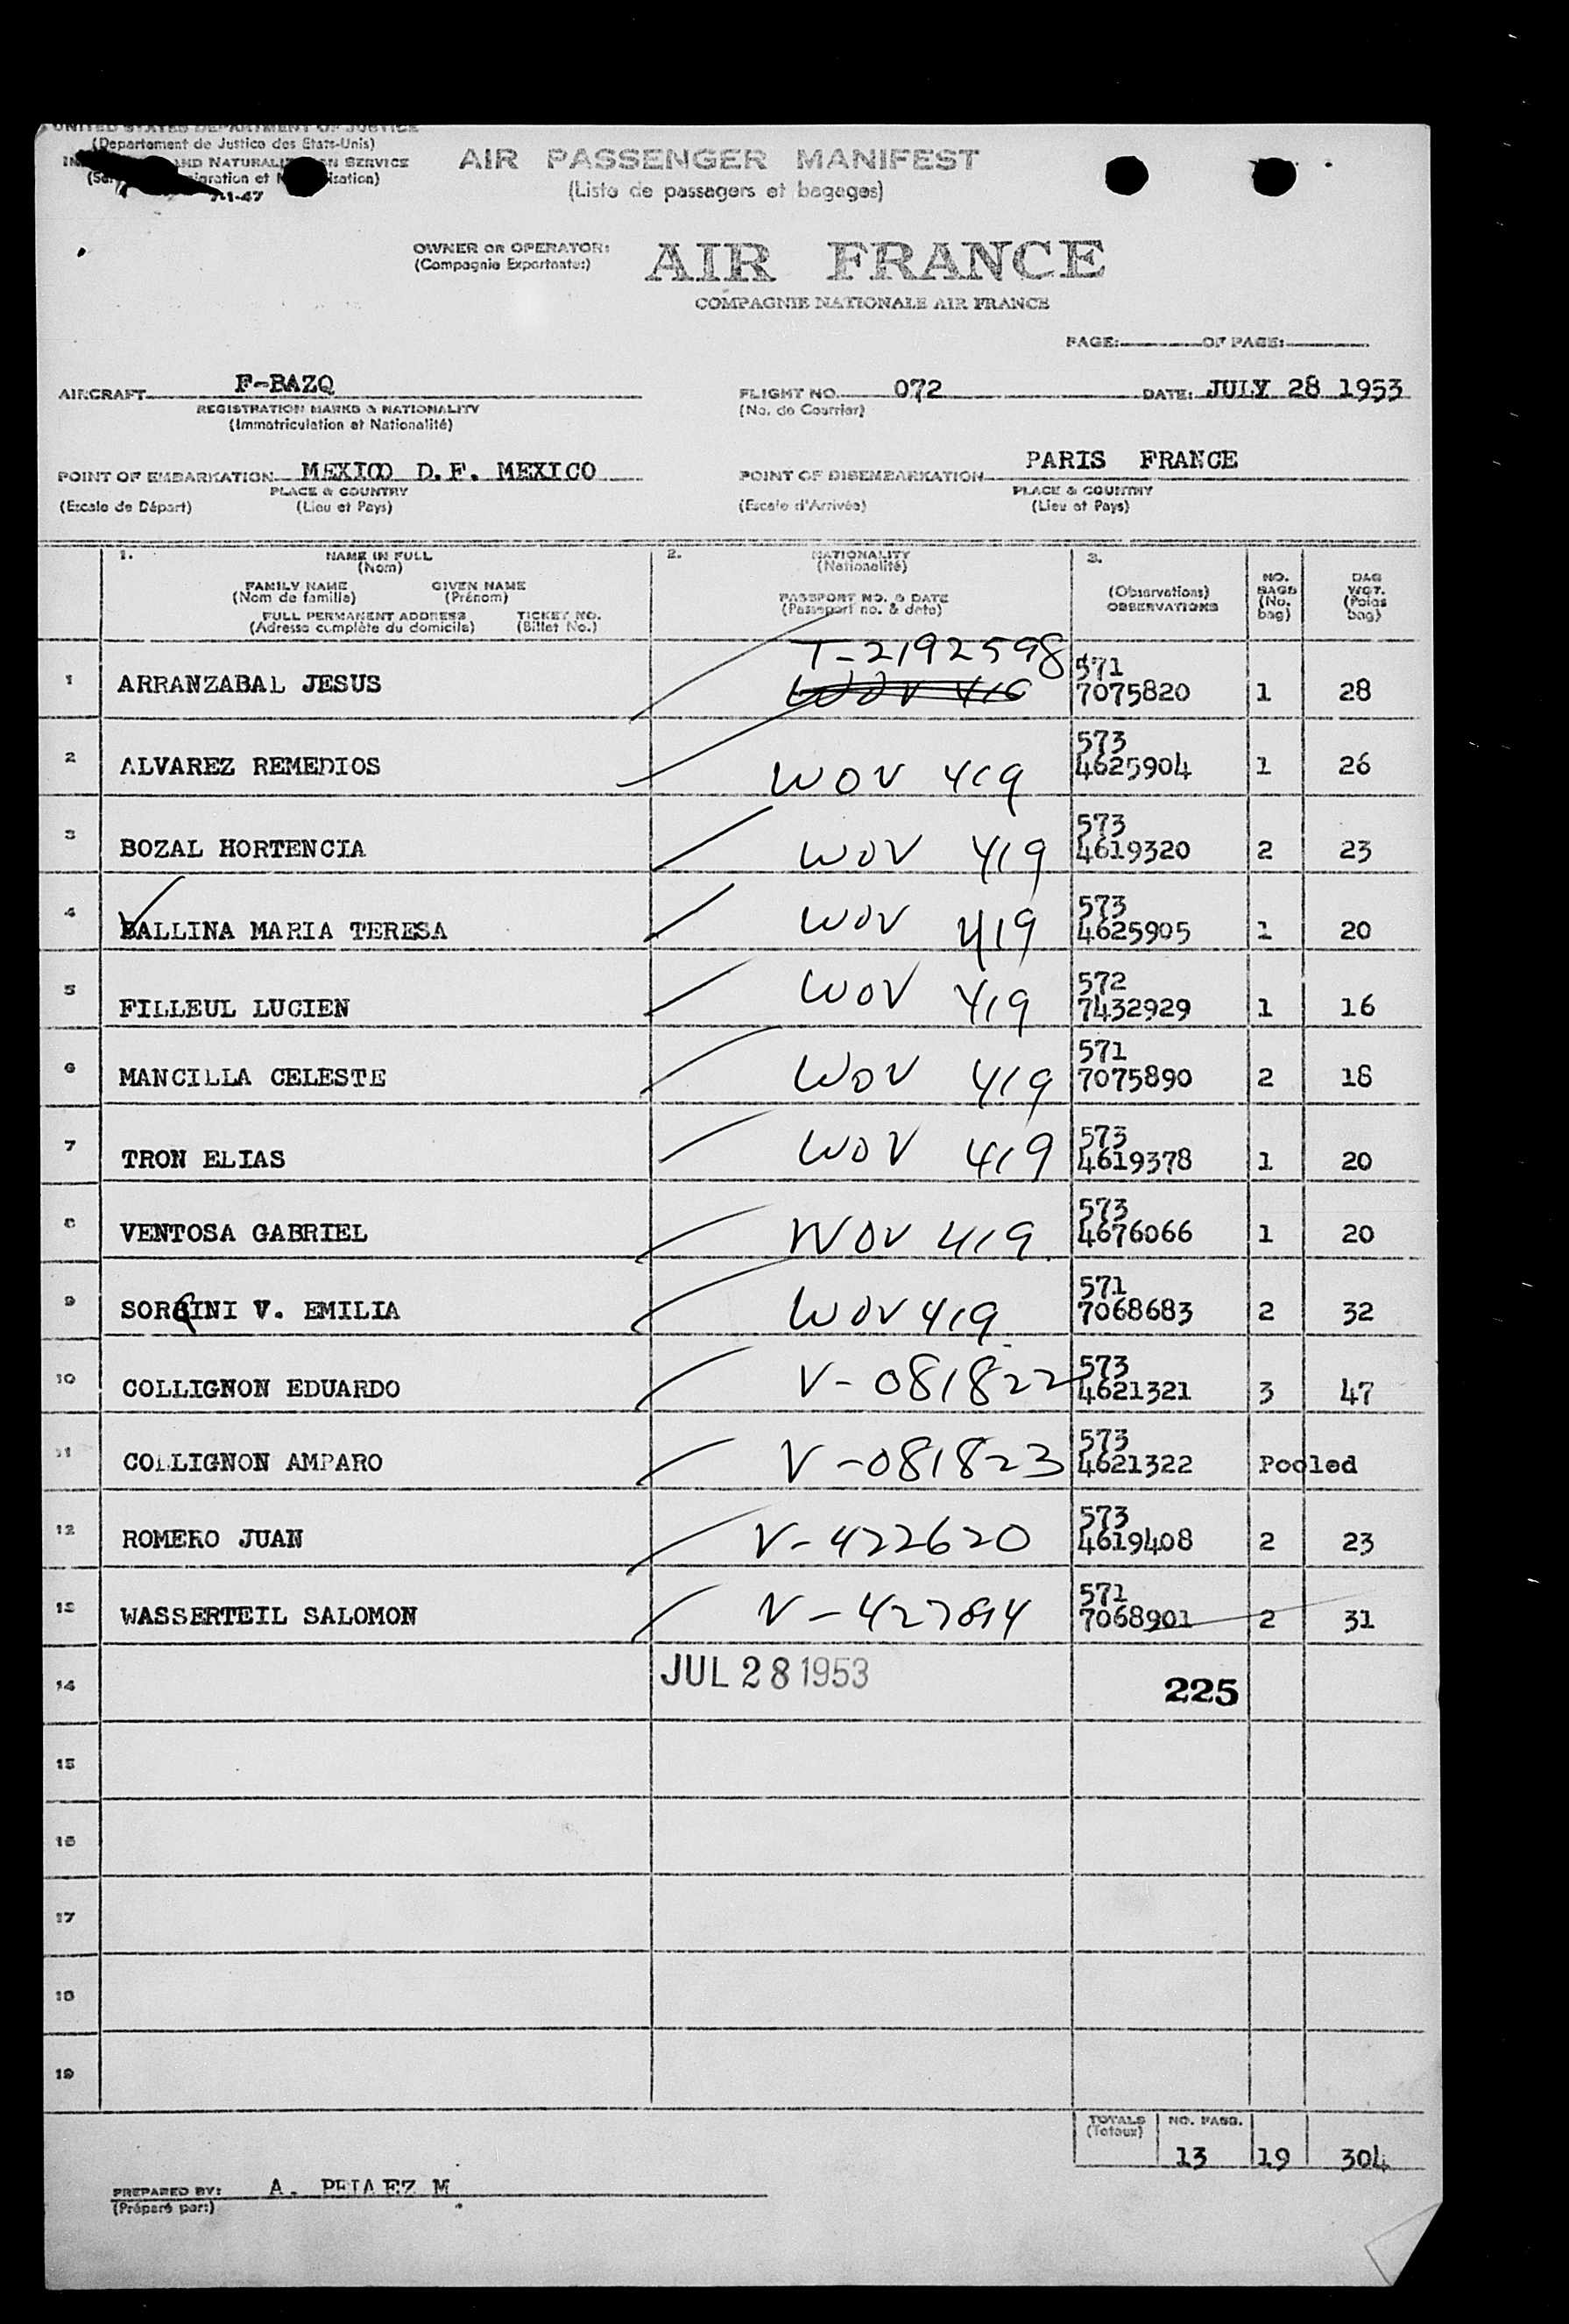 UNITED STATES DEPARTMENT OF JUSTICE
(Departement de Justice des Etats-Unis)
AND NATURALIZATION SERVICE
7-1-47
AIR PASSENGER MANIFEST
(Liste de passagers et bagages)
OWNER OR OPERATOR:
(Compagnie Exportante:)
AIR FRANCE
COMPAGNIE NATIONALE AIR FRANCE
PAGE: OF PAGE:
AIRCRAFT F-BAZQ
REGISTRATION MARKS & NATIONALITY
(Immatriculation et Nationalité)
FLIGHT NO. 072
(No. de Courrier)
DATE: JULY 28 1953
POINT OF EMBARKATION MEXICO D.F. MEXICO
PLACE & COUNTRY
(Escale de Départ) (Lieu et Pays)
POINT OF DISEMBARKATION PARIS FRANCE
PLACE & COUNTRY
(Escale d'Arrivée) (Lieu et Pays)
1. NAME IN FULL
(Nom)
FAMILY NAME GIVEN NAME
(Nom de famille) (Prénom)
FULL PERMANENT ADDRESS TICKET NO.
(Adresse complète du domicile) (Billet No.)
2. NATIONALITY
(Nationalité)
PASSPORT NO. & DATE
(Passeport no. & date)
3.
(Observations)
OBSERVATIONS
NO.
BAGS
(No.
bag)
BAG
WGT.
(Poids
bag)
T-2192598 571
1 ARRANZABAL JESUS WOV 416 7075820 1 28
573
2 ALVAREZ REMEDIOS WOV 419 4625904 1 26
573
3 BOZAL HORTENCIA WOV 419 4619320 2 23
573
4 BALLINA MARIA TERESA WOV 419 4625905 1 20
572
5 FILLEUL LUCIEN WOV 419 7432929 1 16
571
6 MANCILLA CELESTE WOV 419 7075890 2 18
573
7 TRON ELIAS WOV 419 4619378 1 20
573
8 VENTOSA GABRIEL WOV 419 4676066 1 20
571
9 SORGINI V. EMILIA WOV 419 7068683 2 32
573
10 COLLIGNON EDUARDO V-081822 4621321 3 47
573
11 COLLIGNON AMPARO V-081823 4621322 Pooled
573
12 ROMERO JUAN V-422620 4619408 2 23
571
13 WASSERTEIL SALOMON V-427894 7068901 2 31
JUL 28 1953
14 225
15
16
17
18
19
TOTALS NO. PASS.
(Totaux)
13 19 304
PREPARED BY: A. PELAEZ M.
(Préparé par:)